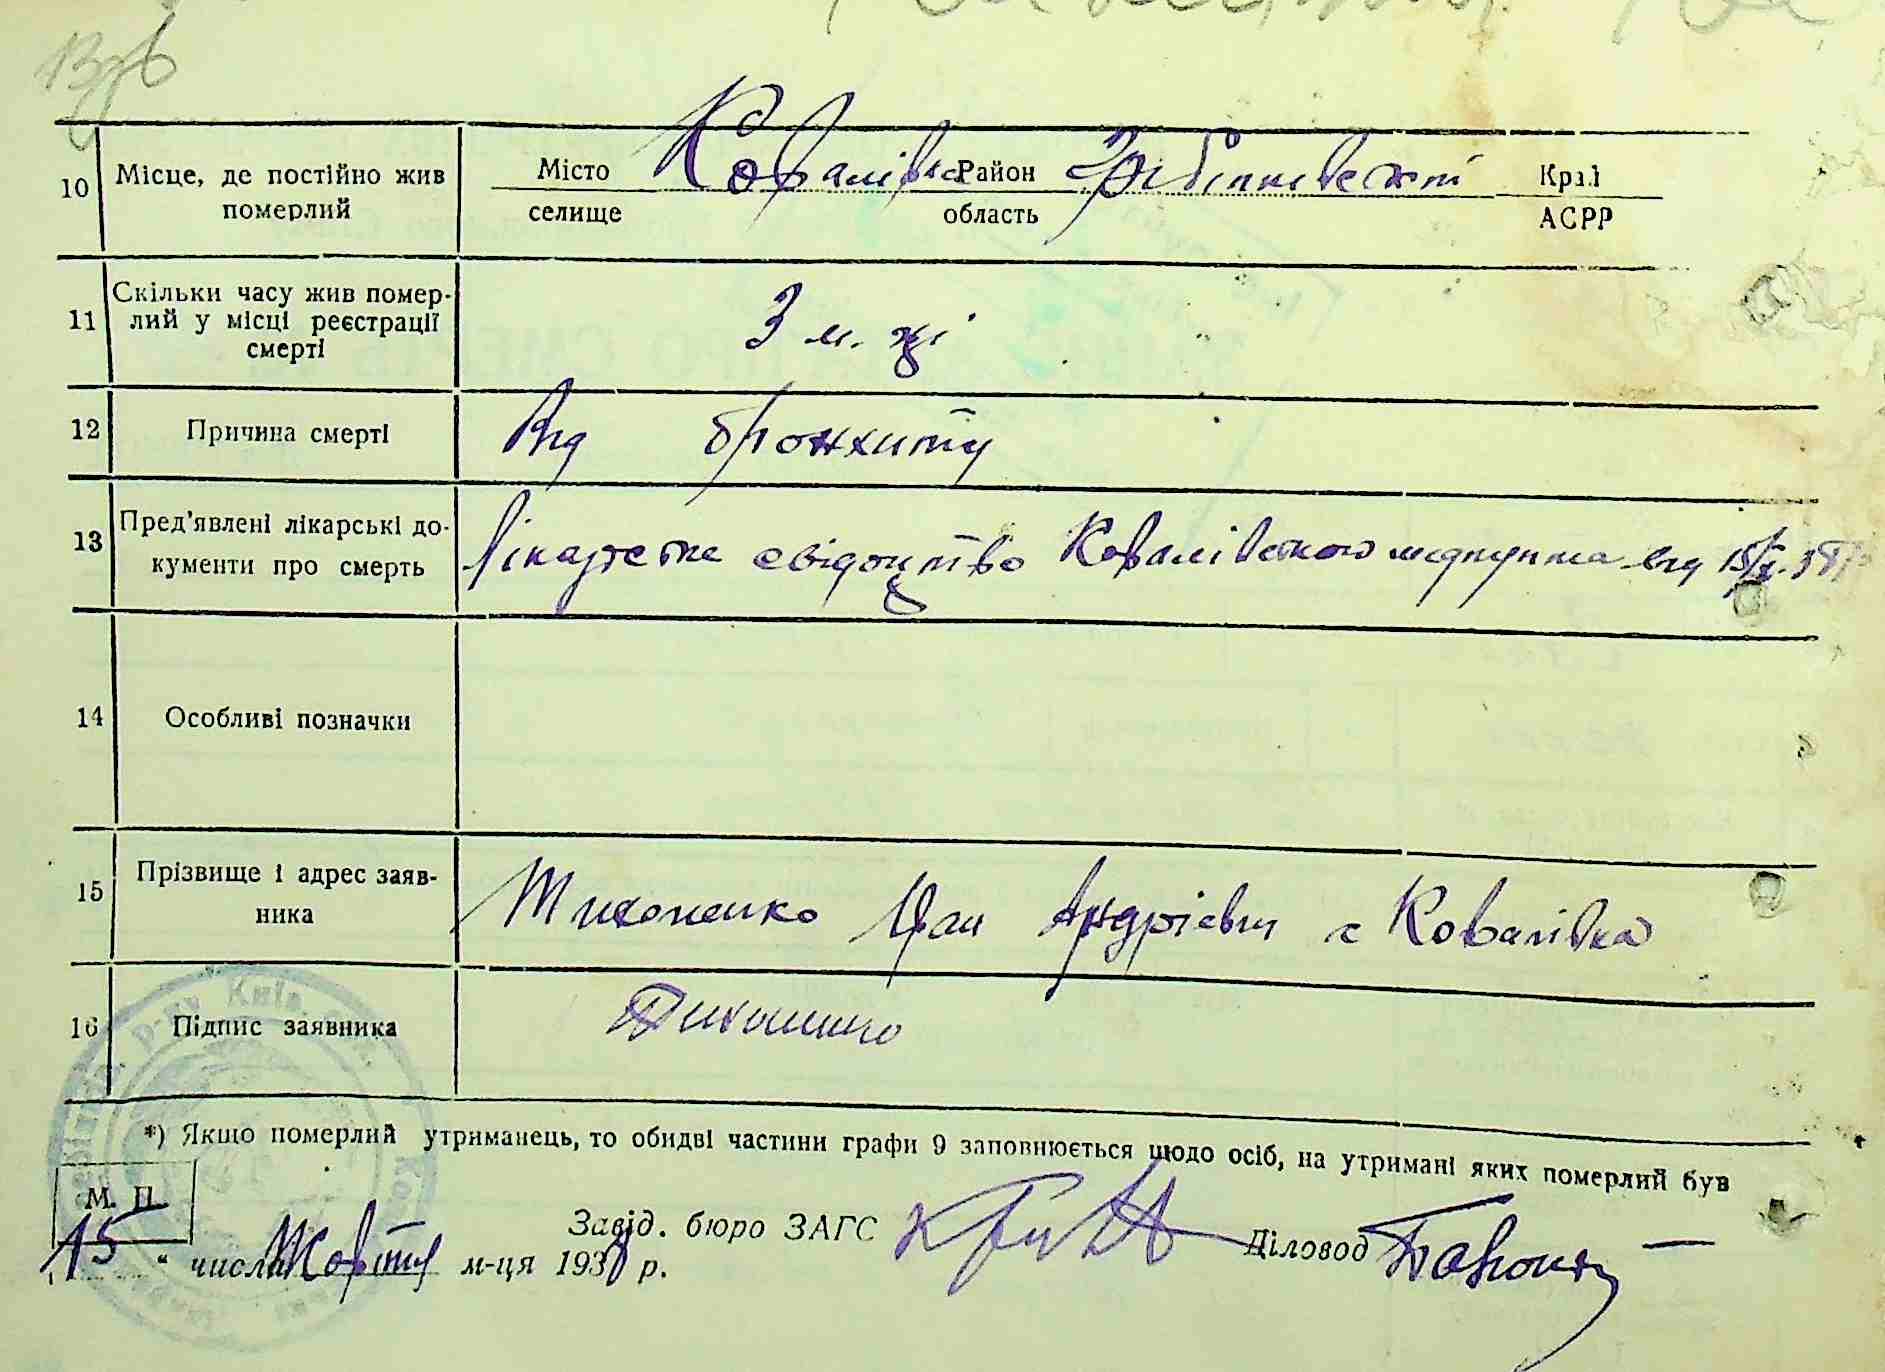 10 Місце, де постійно жив Місто Ковалівка Район Край
померлий селище область АСРР
11 Скільки часу жив помер-
лий у місці реєстрації
смерті
3 м-ці
12 Причина смерті Від бронхиту
13 Пред'явлені лікарські до-
кументи про смерть
Лікарське свідоцтво Ковалівського медпункта від 15/X.38 р
14 Особливі позначки
15 Прізвище і адрес заяв-
ника
Тихоненко Іван Андрієвич с Ковалівка
16 Підпис заявника Тихоненко
*) Якщо померлий утриманець, то обидві частини графи 9 заповнюється щодо осіб, на утримані яких померлий був
М. П.
Завід. бюро ЗАГС Діловод
15 “ числа Жовтня м-ця 1938 р.